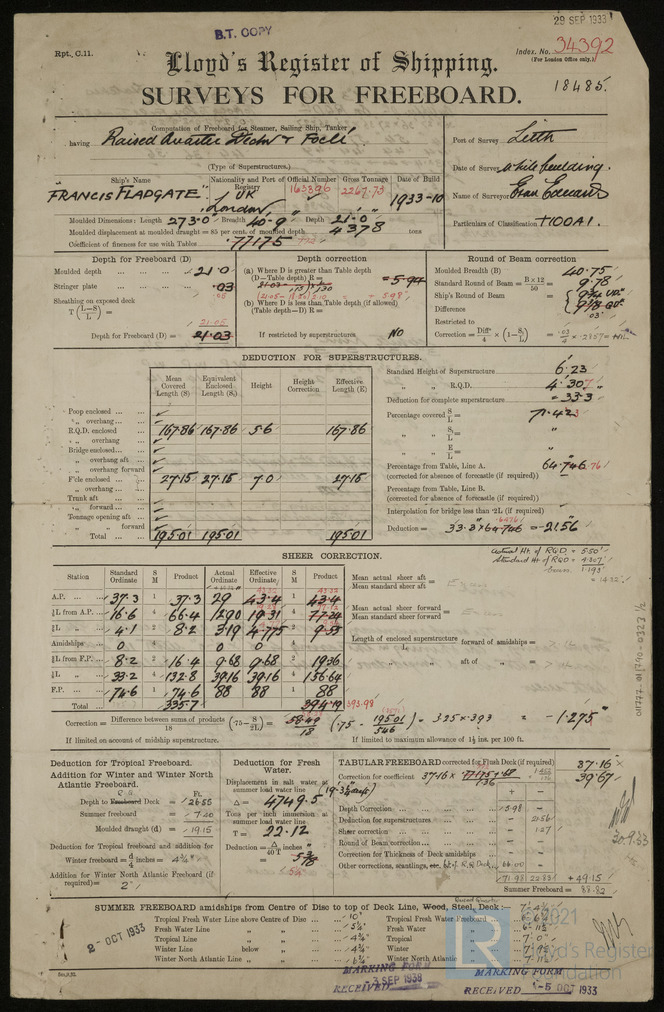 29 SEP 1933
B.T. COPY
Rpt. C.11.
Index. No. 34392
(For London Office only.)
Lloyd's Register of Shipping.
18485.
SURVEYS FOR FREEBOARD.
Computation of Freeboard for Steamer, Sailing Ship, Tanker
having Raised Quarter Deck & Focle
(Type of Superstructures.)
Port of Survey Leith
Date of Survey while building.
Name of Surveyor
Particulars of Classification +100A1.
Ship's Name Nationality and Port of Registry Official Number Gross Tonnage Date of Build
"FRANCIS FLADGATE" UK London 163396 2267.73 1933-10
Moulded Dimensions: Length 273.0 Breadth 40.9 Depth 21.0
Moulded displacement at moulded draught = 85 per cent. of moulded depth 4378 tons
Coefficient of fineness for use with Tables .77175
Depth for Freeboard (D)
Moulded depth 21.0
Stringer plate .03
Sheathing on exposed deck
T (L-S/L) =
21.05
Depth for Freeboard (D) = 21.03
Depth correction
(a) Where D is greater than Table depth
(D-Table depth) R = = 5.94
= 5.98
(b) Where D is less than Table depth (if allowed)
(Table depth-D) R =
If restricted by superstructures NO
Round of Beam correction
Moulded Breadth (B) 40.75
Standard Round of Beam = B x 12 / 50 = 9.78
Ship's Round of Beam =
Difference
Restricted to
Correction = Diff/4 x (1-S/L) =
DEDUCTION FOR SUPERSTRUCTURES.
Mean Covered Length (S) Equivalent Enclosed Length (S₁) Height Effective Length (E)
Poop enclosed
" overhang
R.Q.D. enclosed 167.86 167.86 5.6 167.86
" overhang
Bridge enclosed
" overhang aft
" overhang forward
F'cle enclosed 27.15 27.15 7.0 27.15
" overhang
Trunk aft
" forward
Tonnage opening aft
" " forward
Total 195.01 195.01 195.01
Standard Height of Superstructure 6.23
" " R.Q.D. 4.307
Deduction for complete superstructure = 33.3
Percentage covered S/L = 71.423
" " S₁/L =
" " E/L =
Percentage from Table, Line A. 64.746
(corrected for absence of forecastle (if required))
Percentage from Table, Line B.
(corrected for absence of forecastle (if required))
Interpolation for bridge less than ·2L (if required)
Deduction = 33.3 x 64.746 = -21.56
Actual Ht. of RQD = 5.50'
Standard Ht. of RQD = 4.307'
1.193'
= 14.32"
SHEER CORRECTION.
Station Standard Ordinate S M Product Actual Ordinate Effective Ordinate S M Product
A.P. 37.3 1 37.3 29 43.4 1 43.4
⅙L from A.P. 16.6 4 66.4 12.90 19.31 4 77.24
⅓L " 4.1 2 8.2 3.19 4.775 2 9.55
Amidships 0 4 0 0 4
⅓L from F.P. 8.2 2 16.4 9.68 9.68 2 19.36
⅙L " 33.2 4 132.8 39.16 39.16 4 156.64
F.P. 74.6 1 74.6 88 88 1 88
Total 335.7 394.19 393.98
Mean actual sheer aft / Mean standard sheer aft =
Mean actual sheer forward / Mean standard sheer forward =
Length of enclosed superstructure / L forward of amidships =
" " aft of " =
Correction = Difference between sums of products / 18 (·75 - S/2L) = 58.49 / 18 (.75 - 195.01 / 546) = 3.25 x .393 = -1.275"
If limited on account of midship superstructure.
If limited to maximum allowance of 1½ ins. per 100 ft.
Deduction for Tropical Freeboard.
Addition for Winter and Winter North Atlantic Freeboard.
Ft.
Depth to Freeboard Deck = 26.55
Summer freeboard = 7.40
Moulded draught (d) = 19.15
Deduction for Tropical freeboard and addition for
Winter freeboard = d/4 inches = 4¾"
Addition for Winter North Atlantic Freeboard (if required) = 2"
Deduction for Fresh Water.
Displacement in salt water at summer load water line
Δ = 4749.5
Tons per inch immersion at summer load water line
T = 22.12
Deduction = Δ / 40 T inches
= 5⅜
TABULAR FREEBOARD corrected for Flush Deck (if required) 37.16
Correction for coefficient 37.16 x 39.67
+ -
Depth Correction 5.98
Deduction for superstructures 21.56
Sheer correction 1.27
Round of Beam correction
Correction for Thickness of Deck amidships
Other corrections, scantlings, etc. 66.00
71.98 22.83 + 49.15
Summer Freeboard = 88.82
30.9.33
SUMMER FREEBOARD amidships from Centre of Disc to top of Deck Line, Wood, Steel, Deck: 7'-4¾"
2 - OCT 1933
Tropical Fresh Water Line above Centre of Disc 10"
Fresh Water Line " " 5¼"
Tropical Line " " 4¾"
Winter Line below " 4¾"
Winter North Atlantic Line " "
Tropical Fresh Water Freeboard
Fresh Water " 6'-11½"
Tropical " 7'-0"
Winter "
Winter North Atlantic "
MARKING FORM
RECEIVED
MARKING FORM
RECEIVED -5 OCT 1933
©2021
LR
Lloyd's Register
Foundation